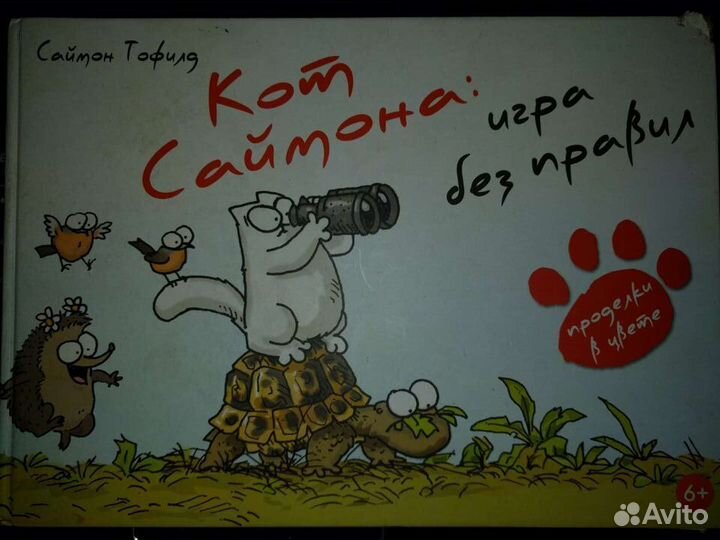 Саймон Тофилд
Кот
Саймона:
игра
без правил
проделки
в цвете
6+
Avito